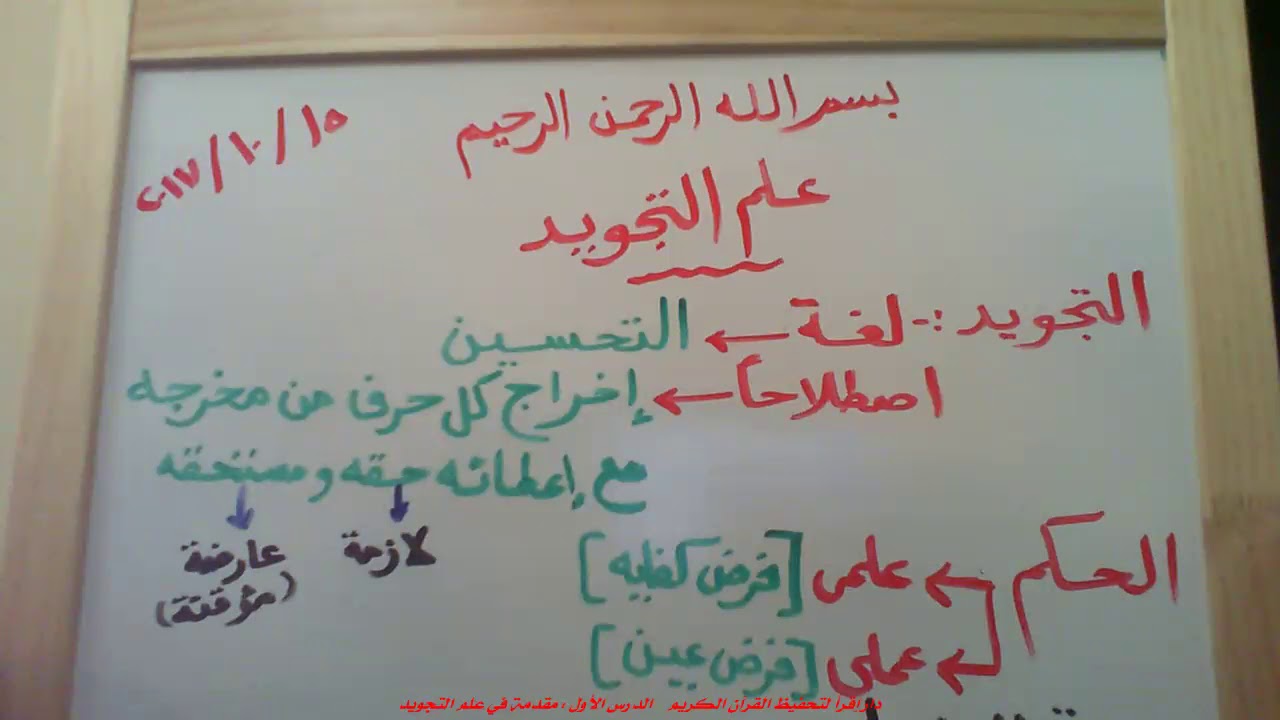 بسم الله الرحمن الرحيم
٢٠١٧/١٠/١٥
علم التجويد
التجويد :- لغة ← التحسين
اصطلاحاً ← إخراج كل حرف من مخرجه
مع إعطائه حقه ومستحقه
لازمة
عارضة
(مؤقتة)
الحكم ← علمي [فرض كفايه]
← عملي [فرض عين]
دار اقرأ لتحفيظ القران الكريم الدرس الأول : مقدمة في علم التجويد